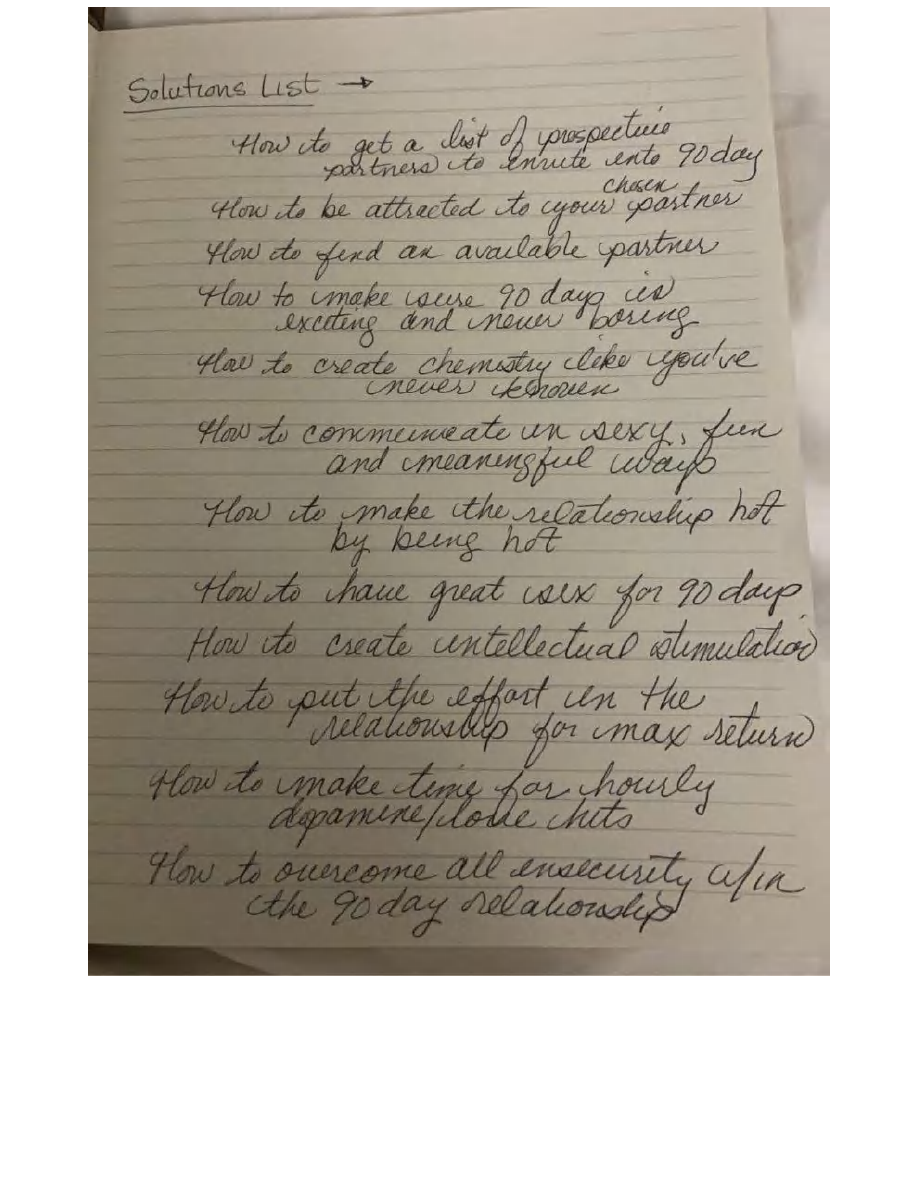 Solutions List →
How to get a list of prospective
partners to invite into 90 day
chosen
How to be attracted to your partner
How to find an available partner
How to make sure 90 days is
exciting and never boring
How to create chemistry like you've
never known
How to communicate in sexy, fun
and meaningful ways
How to make the relationship hot
by being hot
How to have great sex for 90 days
How to create intellectual stimulation
How to put the effort in the
relationship for max return
How to make time for hourly
dopamine/love hits
How to overcome all insecurity w/in
the 90 day relationship